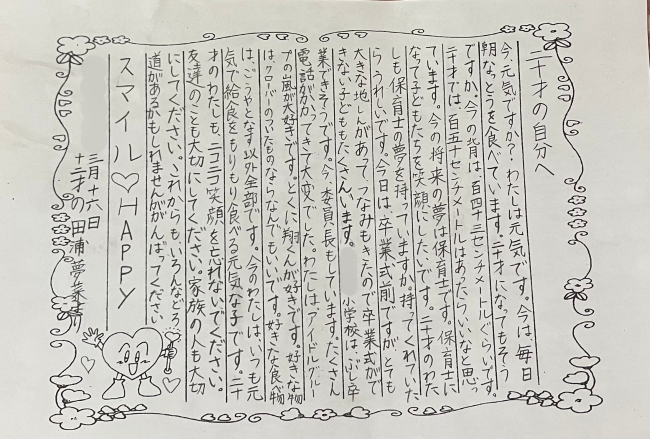 二十才の自分へ
今、元気ですか？わたしは元気です。今は、毎日
朝、なっとうを食べています。二十才になってもそう
ですか。今の背は、百四十三センチメートルぐらいです。
二十才では、百五十センチメートルはあったらいいなと思っ
ています。今の将来の夢は保育士です。保育士に
なって子どもたちを笑顔にしたいです。二十才のわた
しも保育士の夢を持っていますか。持ってくれていた
らうれしいです。今日は、卒業式前ですがとても
大きな地しんがあって、つなみもきたので卒業式がで
きない子どももたくさんいます。
小学校は、ぶじ卒
業できそうです。今、委員長もしています。たくさん
電話がかかってきて大変でした。わたしは、アイドルグルー
プの嵐が大好きです。とくに、翔くんが好きです。好きな物
は、クローバーのついたものならなんでもいいです。好きな食べ物
は、ごうやとなす以外全部です。今のわたしは、いつも元
気で給食をもりもり食べる元気な子です。二十
才のわたしも、ニコニコ笑顔を忘れないでください。
友達のことも大切にしてください。家族の人も大切
にしてください。これからも、いろんなどろ
道があるかもしれませんががんばってください
スマイル♡HAPPY
三月十六日
十二才の田浦夢